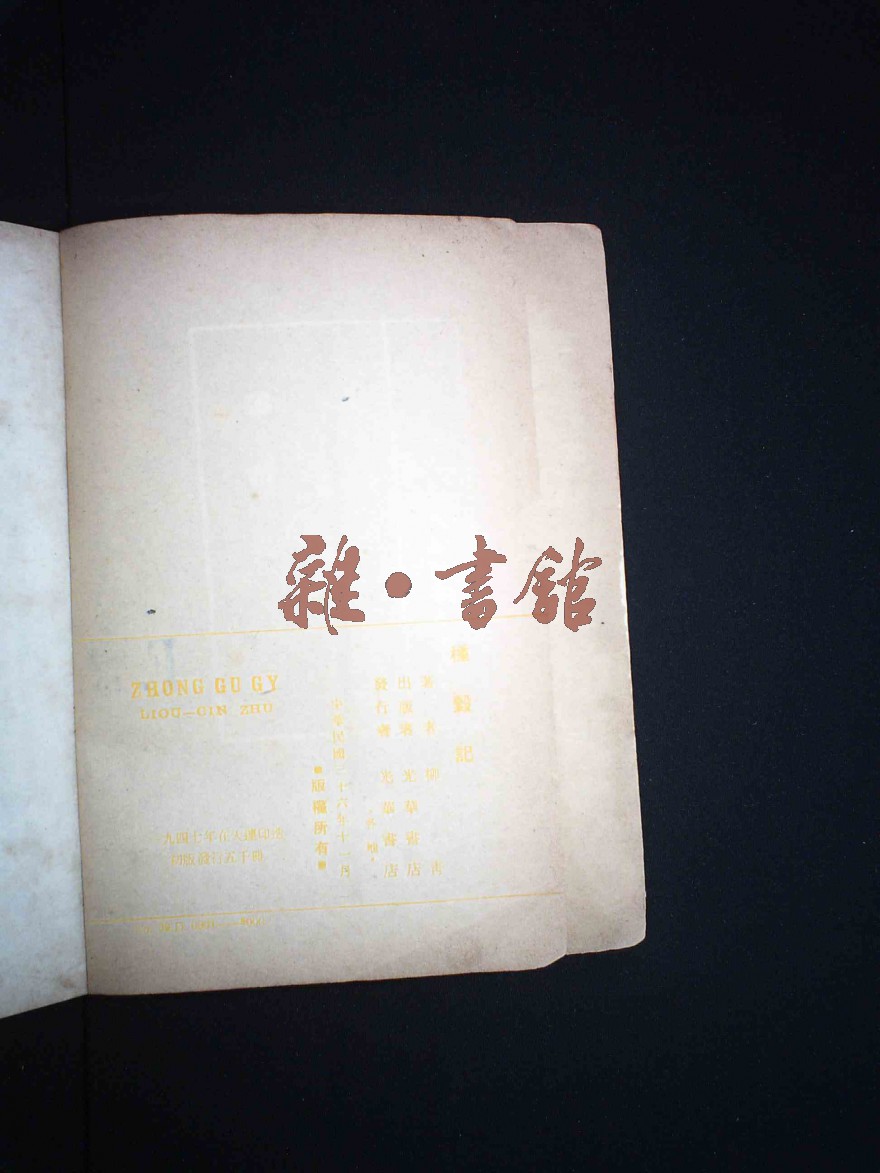 雜•書館
種穀記
著者 柳青
出版者 光華書店
發行者 光華書店
·各地·
中華民國三十六年十一月
●版權所有●
ZHONG GU GY
LIOU—CIN ZHU
一九四七年在大連印造
初版發行五千冊